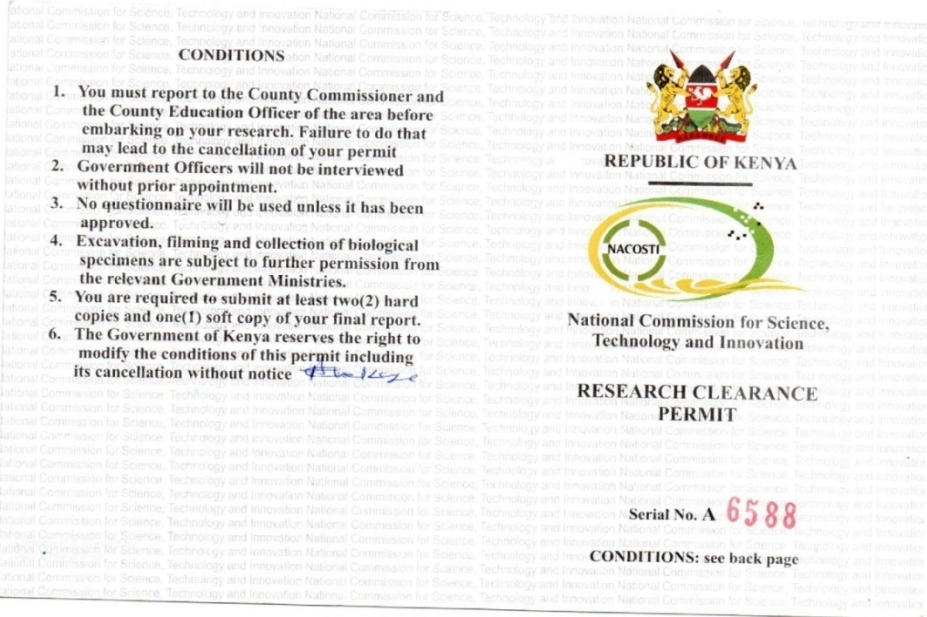 CONDITIONS
1. You must report to the County Commissioner and
the County Education Officer of the area before
embarking on your research. Failure to do that
may lead to the cancellation of your permit
2. Government Officers will not be interviewed
without prior appointment.
3. No questionnaire will be used unless it has been
approved.
4. Excavation, filming and collection of biological
specimens are subject to further permission from
the relevant Government Ministries.
5. You are required to submit at least two(2) hard
copies and one(1) soft copy of your final report.
6. The Government of Kenya reserves the right to
modify the conditions of this permit including
its cancellation without notice
REPUBLIC OF KENYA
NACOSTI
National Commission for Science,
Technology and Innovation
RESEARCH CLEARANCE
PERMIT
Serial No. A 6588
CONDITIONS: see back page